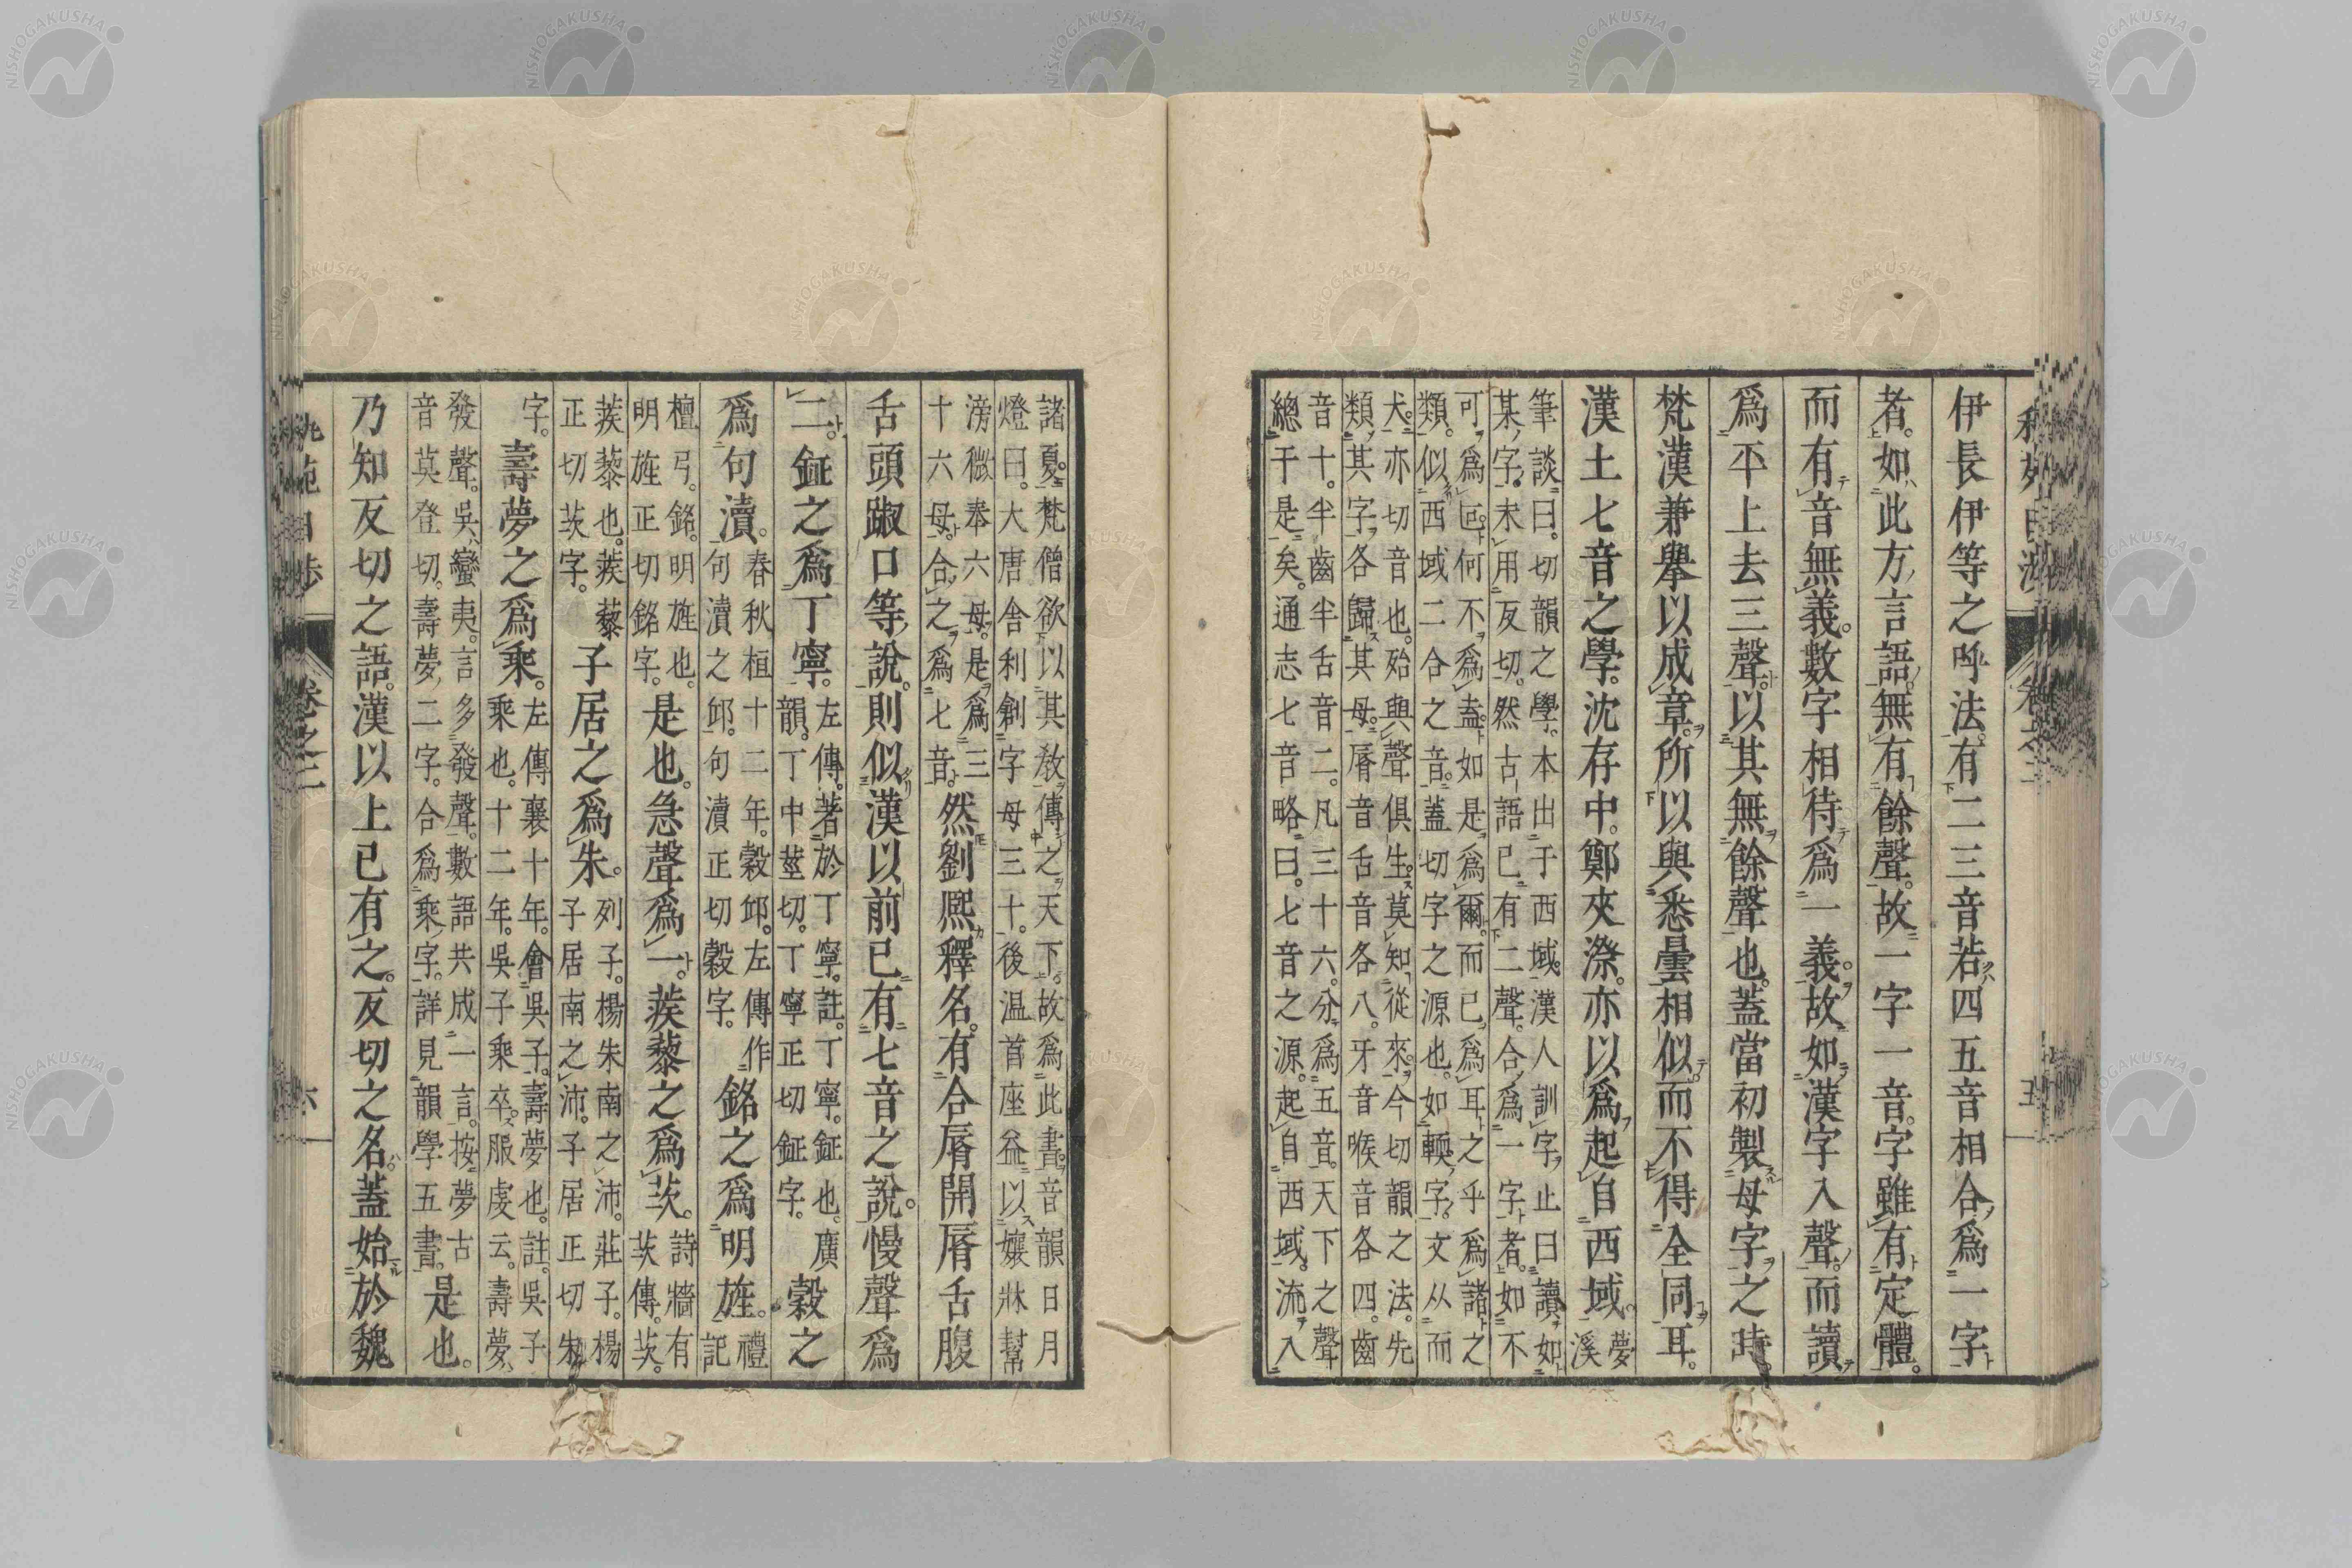 伊長伊等之呼法。有二三音若四五音相合爲一字
者。如此方言語。無有餘聲。故一字一音。字雖有定體。
而有音無義。數字相待爲一義。故如漢字入聲。而讀
爲平上去三聲。以其無餘聲也。蓋當初製母字之時。
梵漢兼擧以成章。所以與悉曇相似。而不得全同耳。
漢土七音之學。沈存中。鄭夾漈。亦以爲起自西域。夢溪
筆談曰。切韻之學。本出于西域。漢人訓字。止曰讀如
某字。未用反切。然古語已有二聲。合爲一字者。如不
可爲叵。何不爲盍。如是爲爾。而已爲耳。之乎爲諸之
類。似西域二合之音。蓋切字之源也。如輭字。文从而
犬。亦切音也。始與聲俱生。莫知從來。今切韻之法。先
類其字。各歸其母。脣音舌音各八。牙音喉音各四。齒
音十。半齒半舌音二。凡三十六。分爲五音。天下之聲
總于是矣。通志七音略曰。七音之源。起自西域。流入
諸夏。梵僧欲以其敎傳之天下。故爲此書。音韻日月
燈曰。大唐舍利創字母三十。後温首座益以孃牀幫
滂微奉六母。是爲三
十六母。合之爲七音。然劉熙釋名。有合脣開脣舌腹
舌頭踧口等說。則似漢以前已有七音之說。慢聲爲
二。鉦之爲丁寧。左傳。著於丁寧。註。丁寧。鉦也。廣
韻。丁中莖切。丁寧正切鉦字。穀之
爲句瀆。春秋桓十二年。穀邱。左傳作
句瀆之邱。句瀆正切穀字。銘之爲明旌。禮記
檀弓。銘。明旌也。
明旌正切銘字。是也。急聲爲一。蒺藜之爲茨。詩牆有茨傳。茨。
蒺藜也。蒺藜
正切茨字。子居之爲朱。列子。楊朱南之沛。莊子。楊
子居南之沛。子居正切朱
字。壽夢之爲乘。左傳襄十年。會吳子壽夢也。註。吳子
乘也。十二年。吳子乘卒。服虔云。壽夢、
發聲。吳蠻夷。言多發聲。數語共成一言。按夢古
音莫登切。壽夢二字。合爲乘字。詳見韻學五書。是也。
乃知反切之語。漢以上已有之。反切之名。蓋始於魏
卷之二
六
五